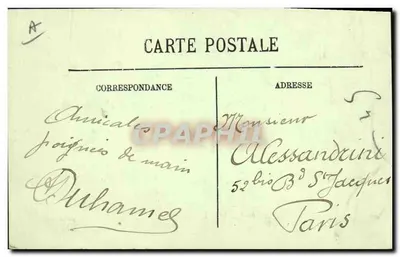 A
CARTE POSTALE
CORRESPONDANCE
ADRESSE
Amicales
poignées de main
Duhamel
Monsieur
Alessandrini
52 bis Bd St Jacques
Paris
CPAPHIL